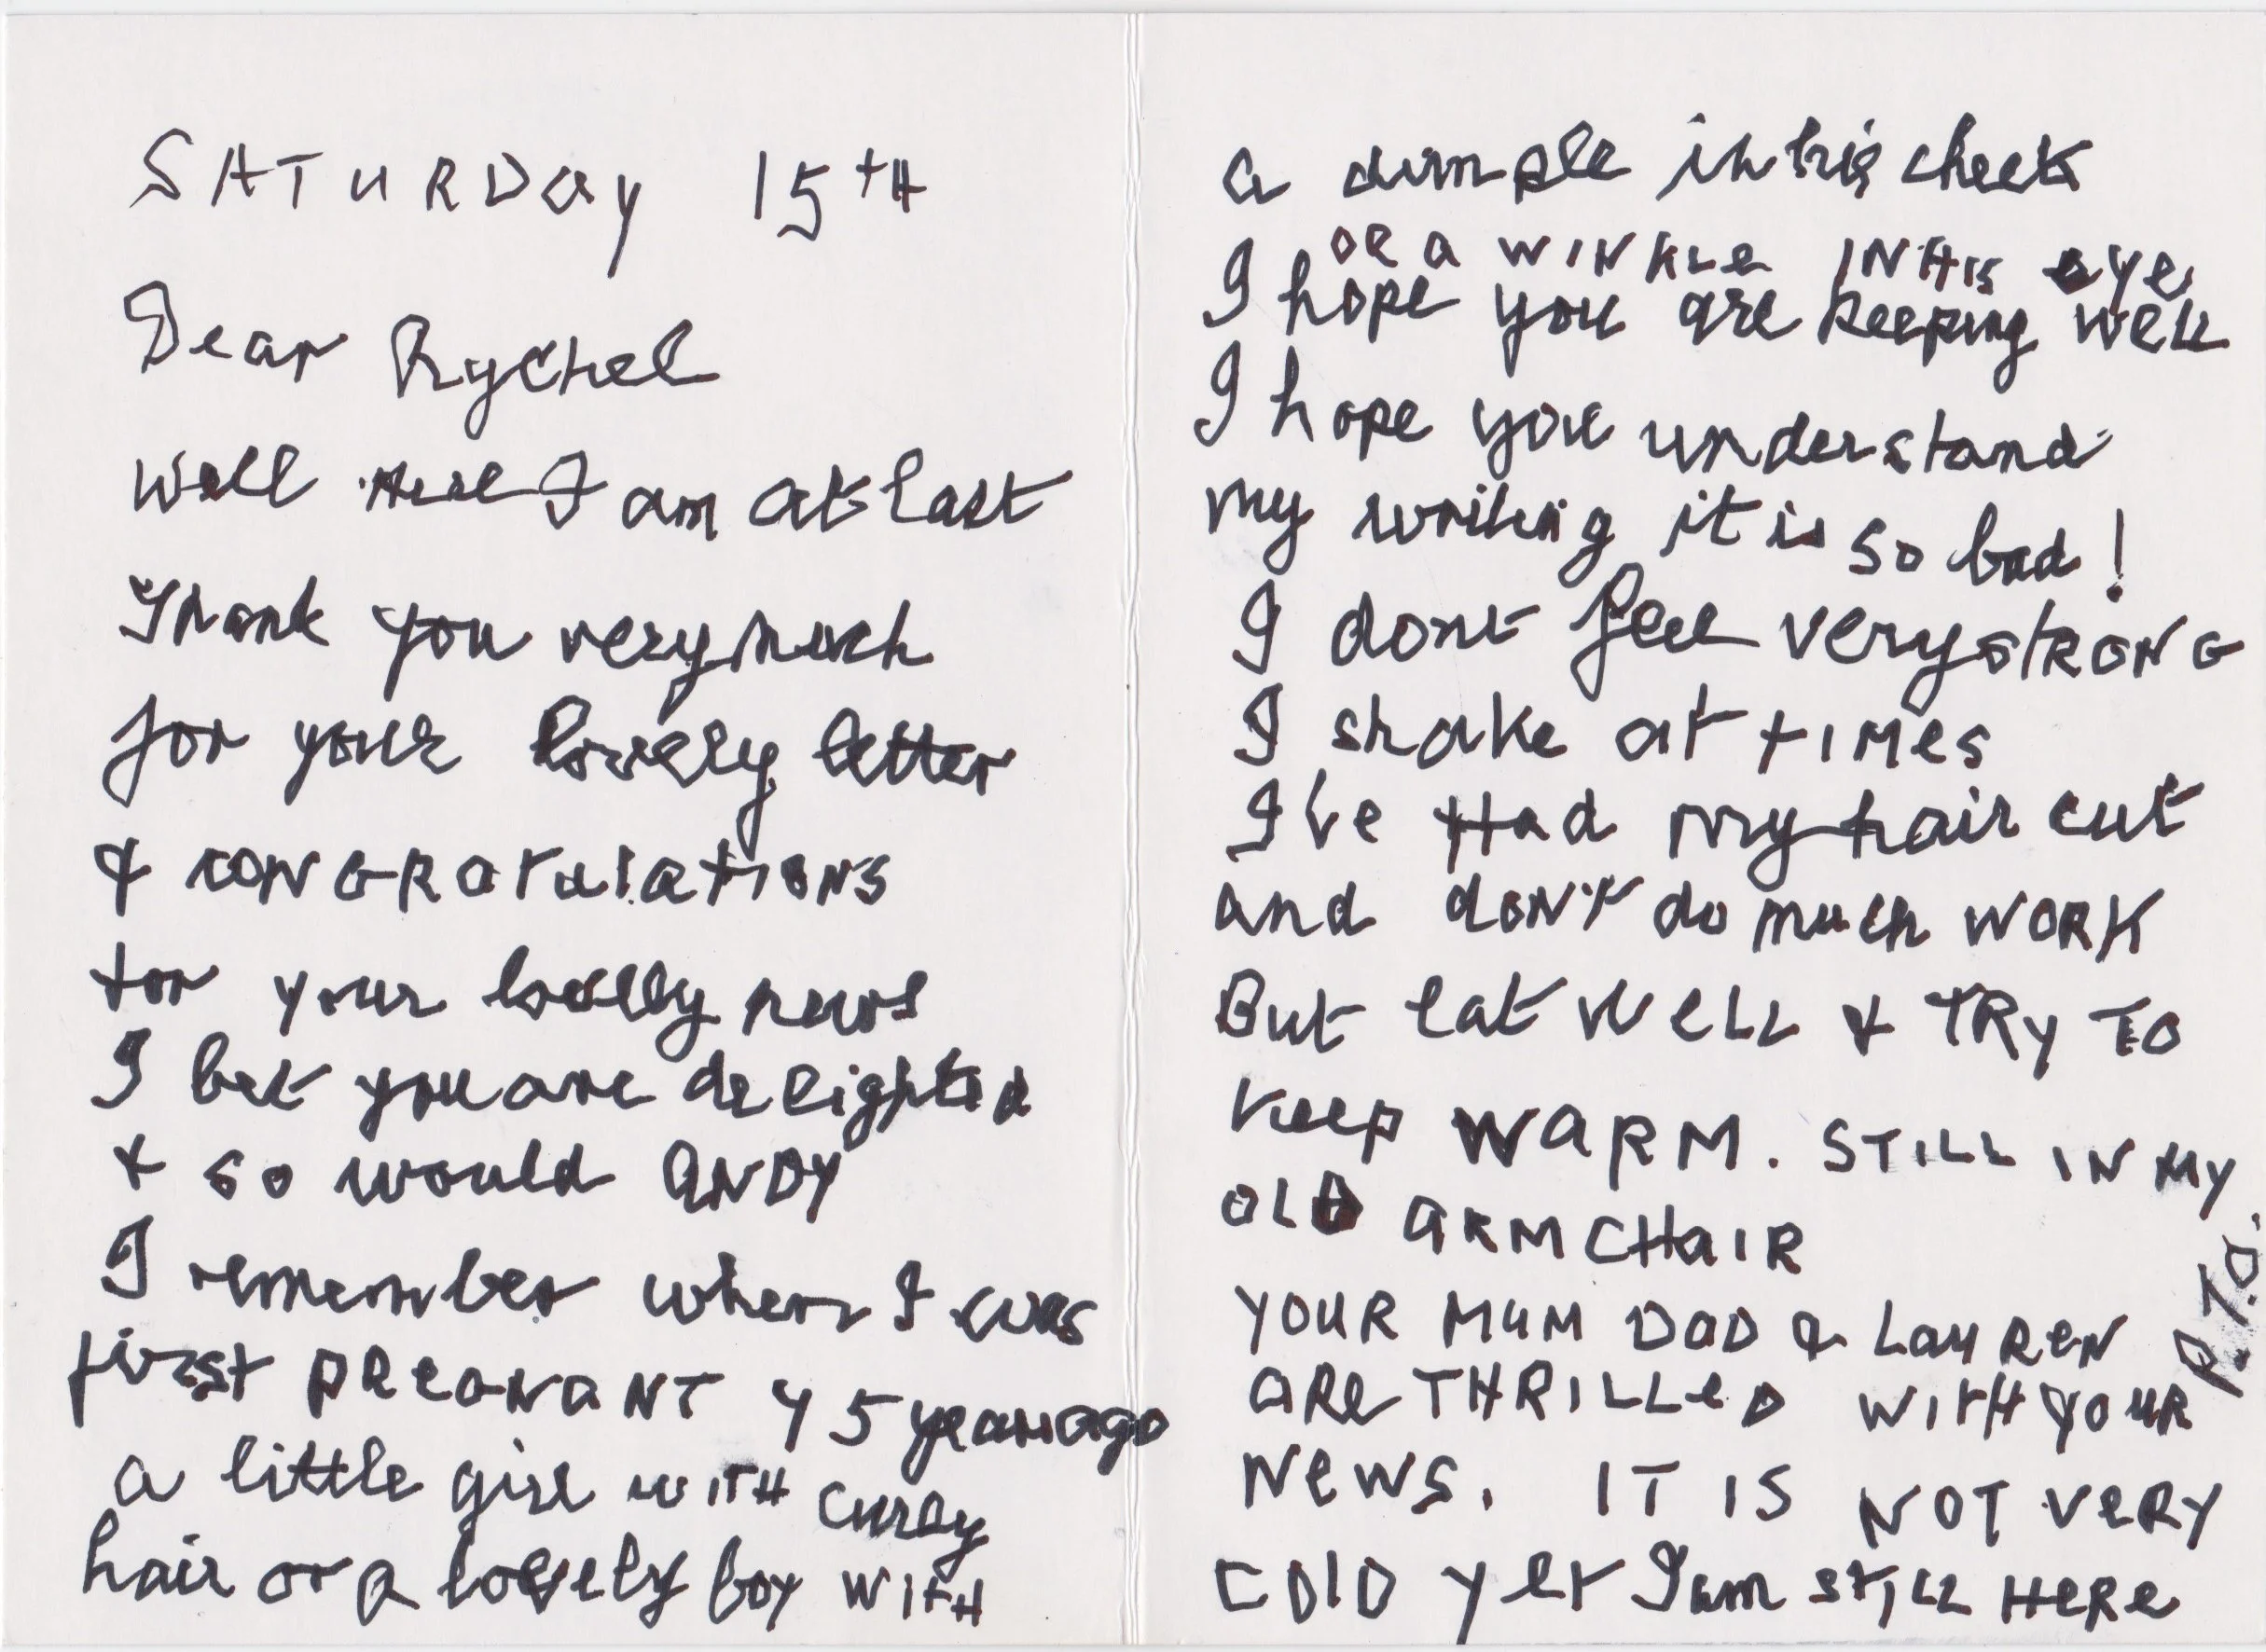 SATURDAY 15TH
Dear Rychel
Well Here I am at last
Thank you very much
for your lovely letter
& CONGRATULATIONS
for your lovely news
I bet you are delighted
& so would ANDY
I remember when I was
first PREGNANT 45 years ago
a little girl WITH curly
hair or a lovely boy WITH
a dimple in his cheek
OR a WINKLE IN HIS eye
I hope you are keeping well
I hope you understand
my writing it is so bad!
I dont feel very STRONG
I shake at TIMES
I've Had my hair cut
and don't do much WORK
But eat WELL & TRY TO
keep WARM. STILL IN MY
OLD ARMCHAIR
YOUR MUM DAD & LAUREN
ARE THRILLED WITH YOUR
NEWS. IT IS NOT VERY
COLD yet I am STILL HERE
P.T.O.